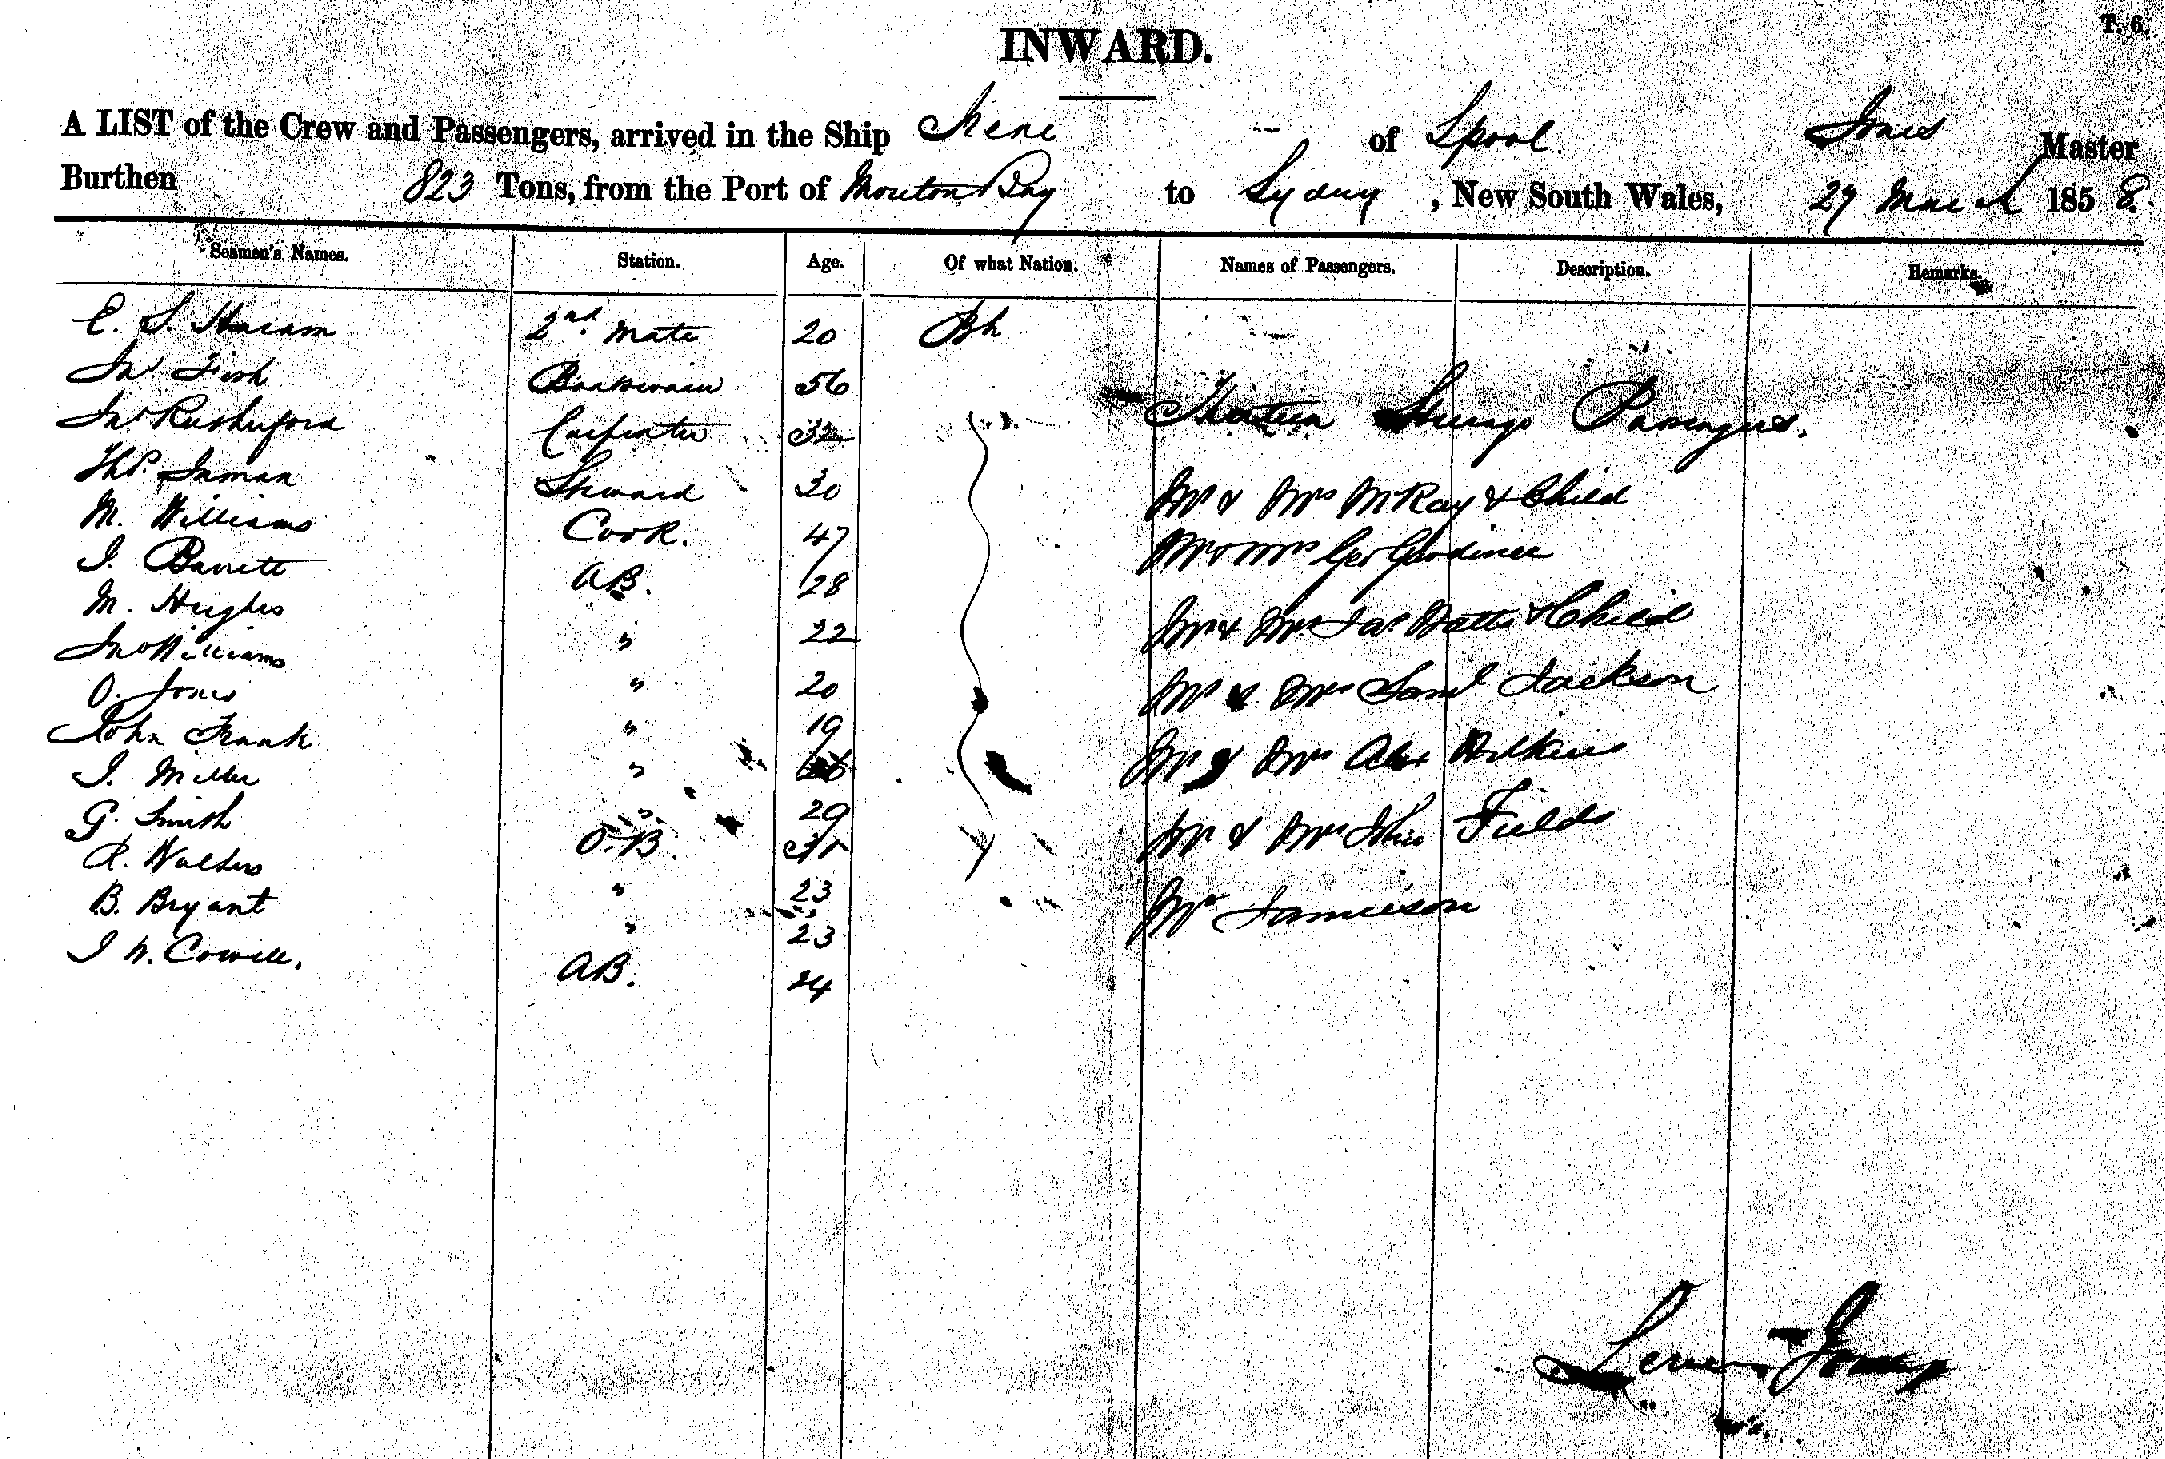 T. 6.
INWARD.
A LIST of the Crew and Passengers, arrived in the Ship Irene of Lpool Jones Master
Burthen 823 Tons, from the Port of Moreton Bay to Sydney, New South Wales, 29 March 1858.
Seamen's Names. Station. Age. Of what Nation. Names of Passengers. Description. Remarks.
E. S. 2nd Mate 20 Bh
Jno Fish Boatswain 56
Jno Rutherford Carpenter 32
Thos Inman Steward 30
M. Williams Cook. 47
J. Barrett AB. 28
M. Hughes " 22
Jno Williams " 20
O. Jones " 19
John Frank "
J. Miller " 29
G. Smith O.B.
R. Walters " 23
B. Bryant " 23
J W. Cowell. AB. 24
Steerage Passengers.
Mr & Mrs McKay & Child
Mr & Mrs Geo Gardiner
Mr & Mrs Jas Watts & Child
Mr & Mrs Saml Jackson
Mr & Mrs Alex Wilkins
Mr & Mrs John Fields
Mr Jamieson
Lewis Jones